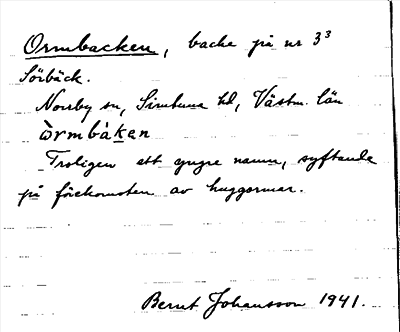 Ormbacken, backe på nr 3³
Sörbäck.
Norrby sn, Simtuna hd, Västm. län
òrmbàken
Troligen ett yngre namn, syftande
på förekomsten av huggormar.
Bernt Johansson 1941.